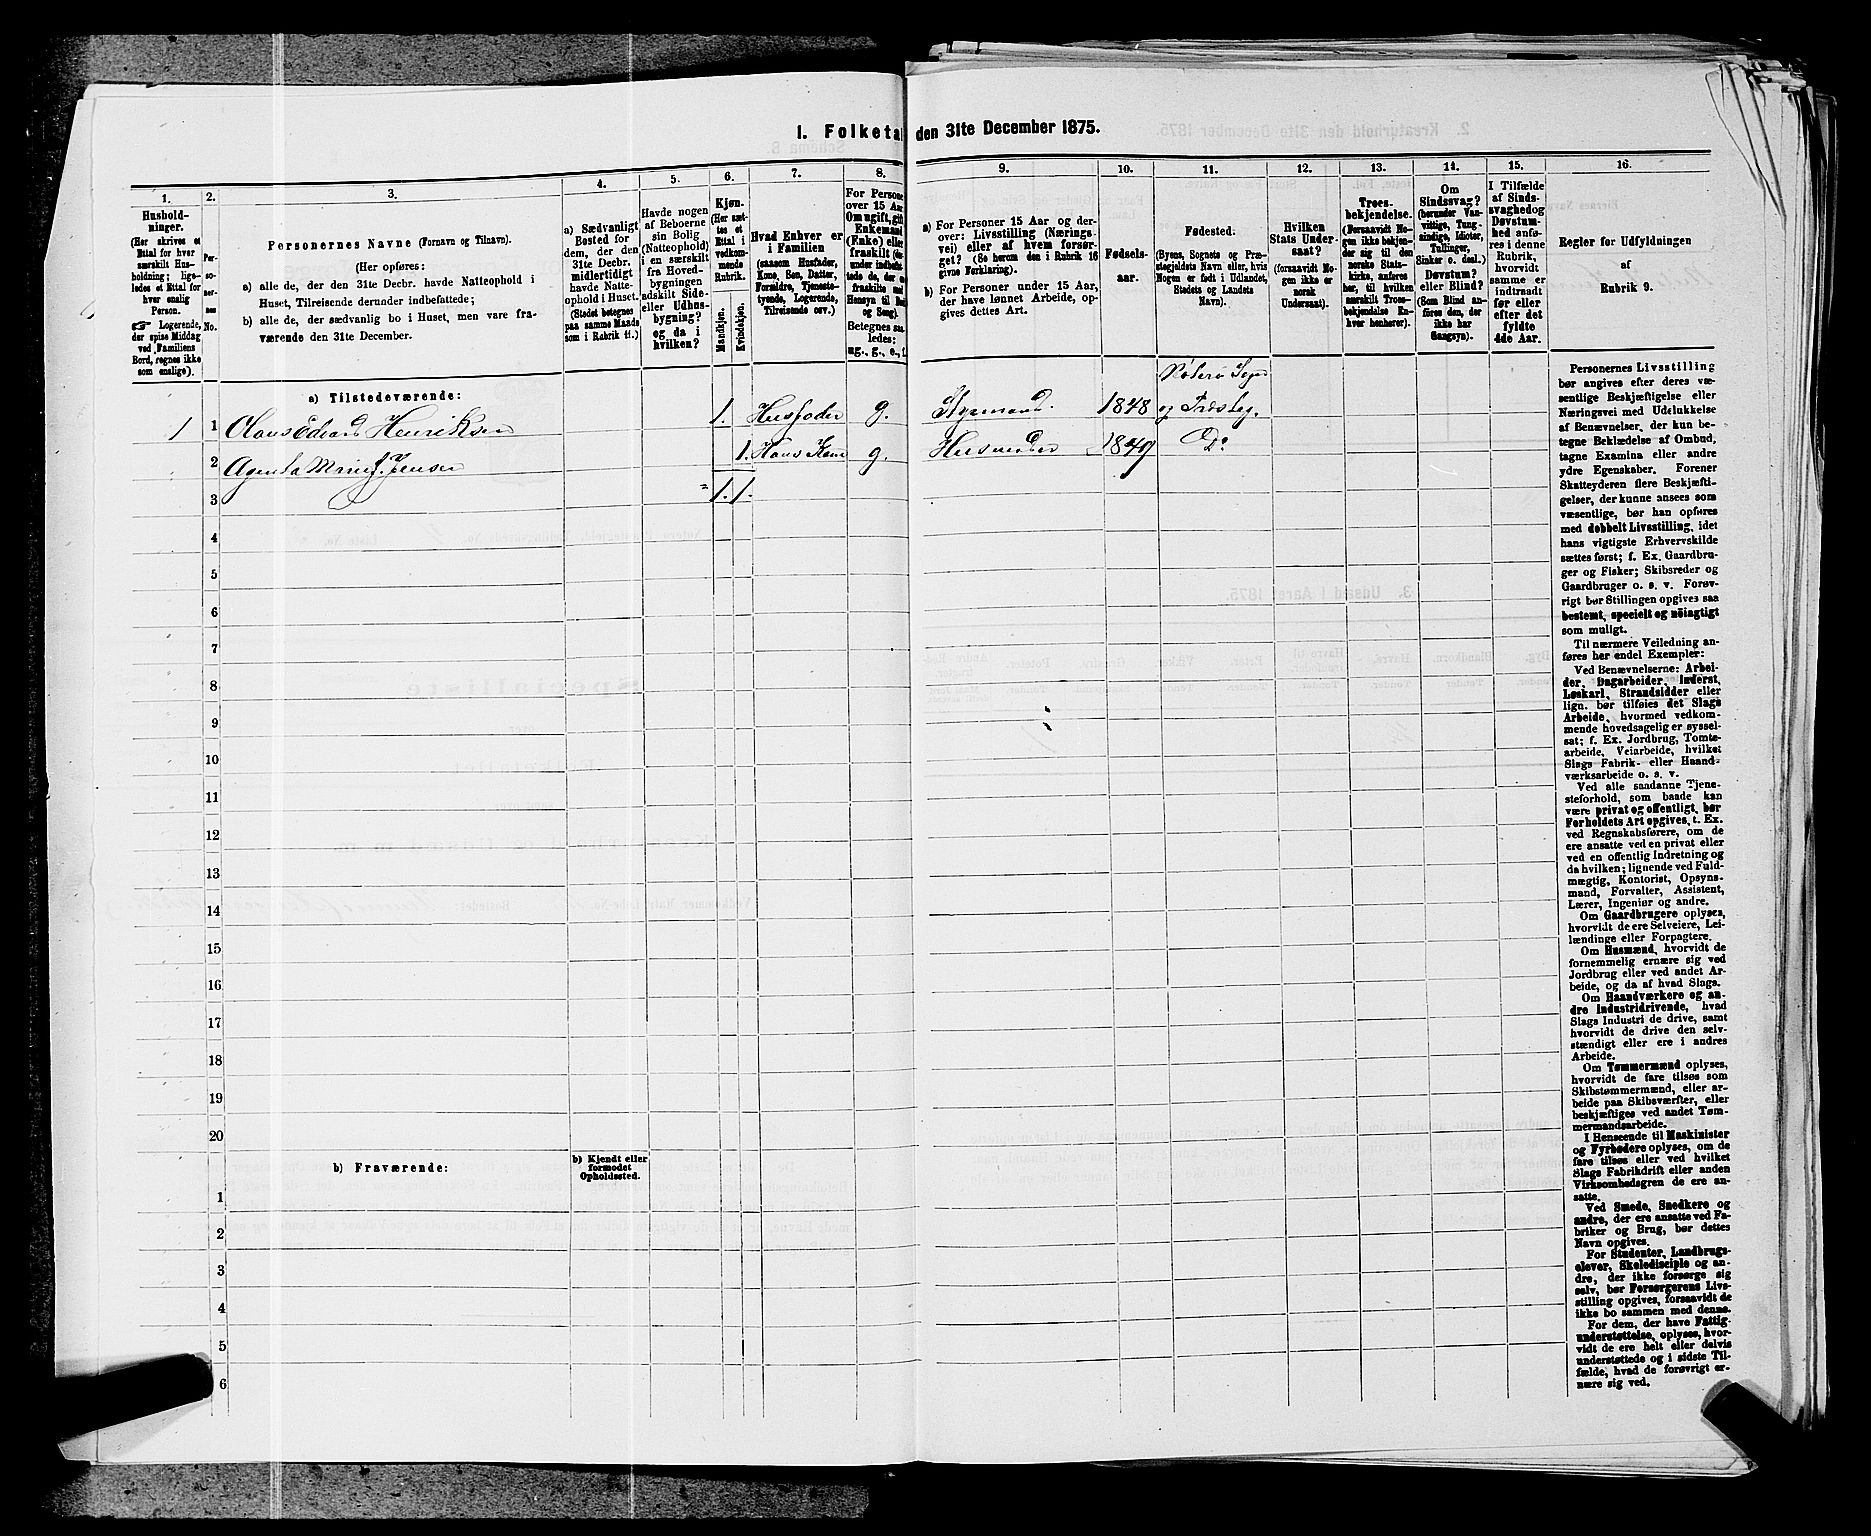 I. Folketal den 31te December 1875.
1.
Hushold-
ninger.
(Her skrives et
Ettal for hver
særskilt Hus-
holdning; lige-
ledes et Ettal for
hver enslig
Person.
☞ Logerende,
der spise Middag
ved Familiens
Bord, regnes ikke
som enslige).
2.
Per-
so-
ner-
nes
No.
3.
Personernes Navne (Fornavn og Tilnavn).
(Her opføres:
a) alle de, der den 31te Decbr. havde Natteophold i
Huset, Tilreisende derunder indbefattede;
b) alle de, der sædvanlig bo i Huset, men vare fra-
værende den 31te December.
4.
a) Sædvanligt
Bosted for
dem, der den
31te Decbr.
midlertidigt
havde Natte-
ophold i Huset.
(Stedet betegnes
paa samme Maade
som i Rubrik 11.)
5.
Havde nogen
af Beboerne
sin Bolig
(Natteophold)
i en særskilt
fra Hoved-
bygningen
adskilt Side-
eller Udhus-
bygning?
og da i
hvilken?
6.
Kjøn.
(Her sæt-
tes et
Ettal i
vedkom-
mende
Rubrik.
Mandkjøn.
Kvindekjøn.
7.
Hvad Enhver er
i Familien
(saasom Husfader,
Kone, Søn, Datter,
Forældre, Tjeneste-
tyende, Logerende,
Tilreisende osv.)
8.
For Persone
over 15 Aar
Om ugift, gift
Enkemand
(Enke) eller
fraskilt
Betegnes saa-
ledes:
ug., g., e., f.
9.
a) For Personer 15 Aar og der-
over: Livsstilling (Nærings-
vei) eller af hvem forsør-
get? (Se herom den i Rubrik 16
givne Forklaring).
b) For Personer under 15 Aar,
der have lønnet Arbeide, op-
gives dettes Art.
10.
Fødsels-
aar.
11.
Fødested.
(Byens, Sognets og Præ-
stegjeldets Navn eller, hvis
Nogen er født i Udlandet,
Stedets og Landets
Navn).
12.
Hvilken
Stats Under-
saat?
(forsaavidt No-
gen ikke er
norsk
Undersaat).
13.
Troes-
bekjendelse.
(Forsaavidt No-
gen ikke bekjen-
der sig til den
norske Stats-
kirke, anføres
her, til hvilken
særskilt Troes-
bekjendelse En-
hver henhører).
14.
Om
Sindssvag?
(herunder Van-
vittige, Tung-
sindige, Idioter,
Tullinger,
Sinker o. desl.)
Døvstum?
eller Blind?
(Som Blind an-
føres den, der
ikke har
Gangsyn).
15.
I Tilfælde
af Sinds-
svaghed og
Døvstum-
hed anfø-
res i denne
Rubrik,
hvorvidt
samme er
indtraadt
før eller
efter det
fyldte
4de Aar.
16.
Regler for Udfyldningen
af
Rubrik 9.
a) Tilstedeværende:
1 1 Olaus Edvard Henriksen 1. Husfader g. 1848
2 Jensen 1. Hans Kone g. Husmoder 1849 Do
3 1. 1.
4
5
6
7
8
9
10
11
12
13
14
15
16
17
18
19
20
b) Fraværende:
b) Kjendt eller
formodet
Opholdssted.
1
2
3
4
5
6
Personernes Livsstilling
bør angives efter deres væ-
sentlige Beskjæftigelse eller
Næringsvei med Udelukkelse
af Benævnelser, der kun be-
tegne Beklædelse af Ombud,
tagne Examina eller andre
ydre Egenskaber. Forener
Skatteyderen flere Beskjæfti-
gelser, der kunne ansees som
væsentlige, bør han opføres
med dobbelt Livsstilling, idet
hans vigtigste Erhvervskilde
sættes først; f. Ex. Gaardbru-
ger og Fisker; Skibsreder og
Gaardbruger o. s. v. Forøv-
rigt bør Stillingen opgives saa
bestemt, specielt og nöiagtigt
som muligt.
Til nærmere Veiledning an-
føres her endel Exempler:
Ved Benævnelserne: Arbei-
der, Dagarbeider, Inderst,
Løskarl, Strandsidder eller
lign. bør tilføies det Slags
Arbeide, hvormed vedkom-
mende hovedsagelig er syssel-
sat; f. Ex. Jordbrug, Tomte-
arbeide, Veiarbeide, hvilket
Slags Fabrik- eller Haand-
værksarbeide o. s. v.
Ved alle saadanne Tjene-
steforhold, som baade kan
være privat og offentligt, bør
Forholdets Art opgives, t. Ex.
ved Regnskabsførere, om de
ere ansatte ved en privat eller
ved en offentlig Indretning og
da hvilken; lignende ved Fuld-
mægtig, Kontorist, Opsyns-
mand, Forvalter, Assistent,
Lærer, Ingeniør og andre.
Om Gaardbrugere oplyses,
hvorvidt de ere Selveiere, Lei-
lændinge eller Forpagtere.
Om Husmænd, hvorvidt de
fornemmelig ernære sig ved
Jordbrug eller ved andet Ar-
beide, og da af hvad Slags.
Om Haandværkere og an-
dre Industridrivende, hvad
Slags Industri de drive, samt
hvorvidt de drive den selv-
stændigt eller ere i andres
Arbeide.
Om Tømmermænd oplyses,
hvorvidt de fare tilsøs som
Skibstømmermænd, eller ar-
beide paa Skibsværfter, eller
beskjæftiges ved andet Tøm-
mermandsarbeide.
I Henseende til Maskinister
og Fyrbødere oplyses, om de
fare tilsøs eller ved hvilket
Slags Fabrikdrift eller anden
Virksomhedsgren de ere an-
satte.
Ved Smede, Snedkere og
andre, der ere ansatte ved Fa-
briker og Brug, bør dettes
Navn opgives.
For Studenter, Landbrugs-
elever, Skoledisciple og an-
dre, der ikke forsørge sig
selv, bør Forsørgerens Livs-
stilling opgives, forsaavidt de
ikke bo sammen med denne.
For dem, der have Fattig-
understøttelse, oplyses, hvor-
vidt de ere helt eller delvis
understøttede og i sidste Til-
fælde, hvad de forøvrigt er-
nære sig ved.